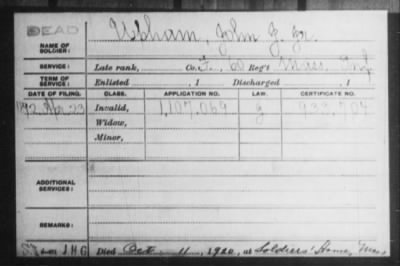 DEAD
NAME OF SOLDIER: Upham, John J. Jr.
SERVICE: Late rank, Co. F, 60 Reg't Mass Inf
TERM OF SERVICE: Enlisted , 1 Discharged , 1
DATE OF FILING. CLASS. APPLICATION NO. LAW. CERTIFICATE NO.
Apr 23 Invalid, 1,107,069 g 933,704
Widow,
Minor,
ADDITIONAL SERVICES:
REMARKS:
JHG Died Oct 11, 1920, at Soldiers' Home, Mass